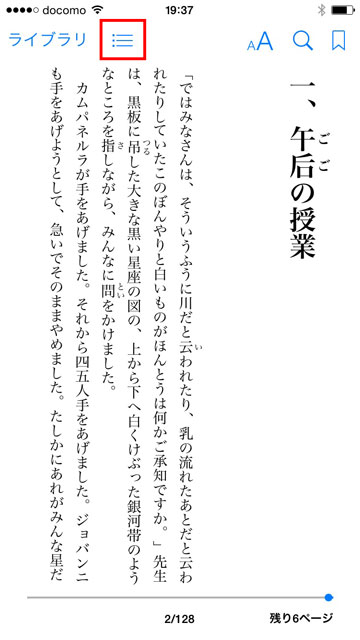 docomo 19:37
ライブラリ AA
一、午后の授業
ごご
「ではみなさんは、そういうふうに川だと云われたり、乳の流れたあとだと云わ
い
れたりしていたこのぼんやりと白いものがほんとうは何かご承知ですか。」先生
は、黒板に吊した大きな黒い星座の図の、上から下へ白くけぶった銀河帯のよう
つる
なところを指しながら、みんなに問をかけました。
さ とい
カムパネルラが手をあげました。それから四五人手をあげました。ジョバンニ
も手をあげようとして、急いでそのままやめました。たしかにあれがみんな星だ
2/128 残り6ページ